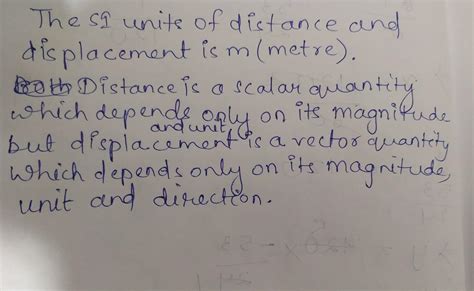 The SI units of distance and
displacement is m (metre).
Both Distance is a scalar quantity
which depends only on its magnitude
and unit
but displacement is a vector quantity
which depends only on its magnitude,
unit and direction.